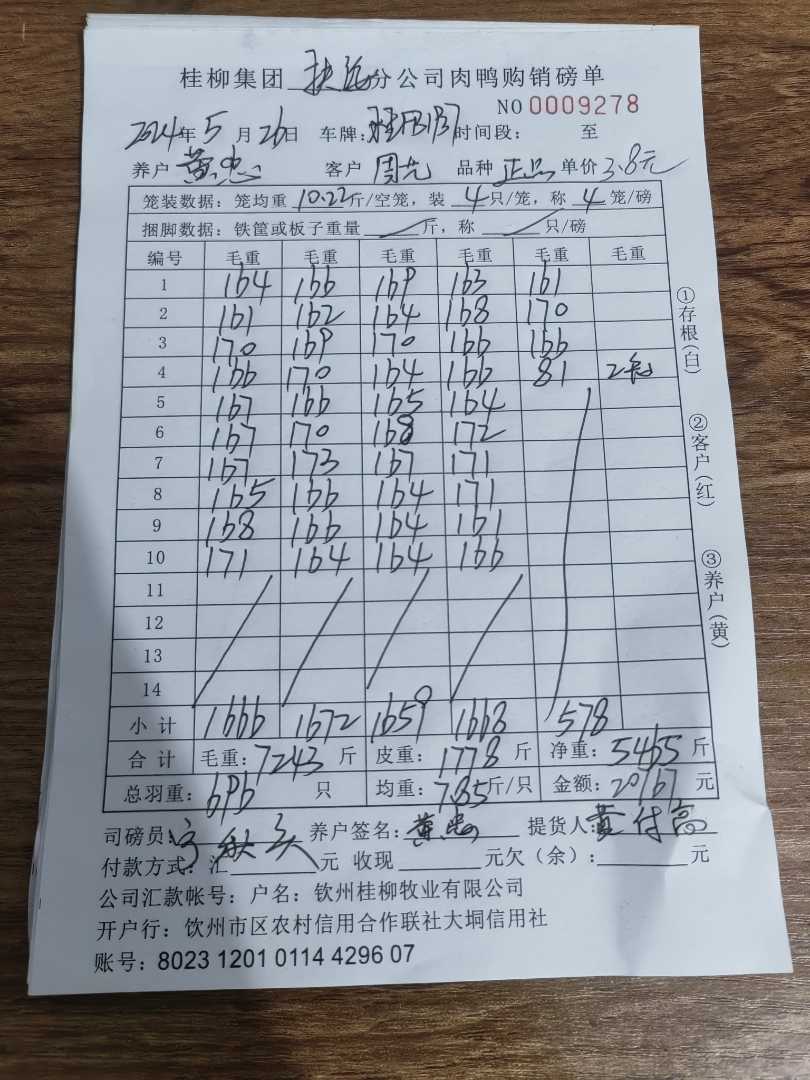 桂柳集团 扶沤 分公司肉鸭购销磅单
NO 0009278
2024年5月26日 车牌: 时间段: 至
养户 黄忠 客户 周元 品种 正品 单价 3.8元
笼装数据：笼均重 10.22 斤/空笼，装 4 只/笼，称 4 笼/磅
捆脚数据：铁筐或板子重量 / 斤，称 / 只/磅
编号 毛重 毛重 毛重 毛重 毛重 毛重
1 164 166 169 163 161
2 161 162 164 168 170
3 170 169 170 166 166
4 166 170 164 166 81 2笼
5 167 166 165 164
6 167 170 168 172
7 167 173 167 171
8 165 166 164 171
9 168 166 164 161
10 171 164 164 166
11
12
13
14
小计 1666 1672 1659 1668 578
合计 毛重：7243 斤 皮重：1778 斤 净重：5465 斤
总羽重：696 只 均重：7.85 斤/只 金额：20767 元
司磅员: 养户签名：黄忠 提货人：黄付高
付款方式：汇 元 收现 元欠（余）： 元
公司汇款帐号：户名：钦州桂柳牧业有限公司
开户行：钦州市区农村信用合作联社大垌信用社
账号：8023 1201 0114 4296 07
①存根(白)
②客户(红)
③养户(黄)